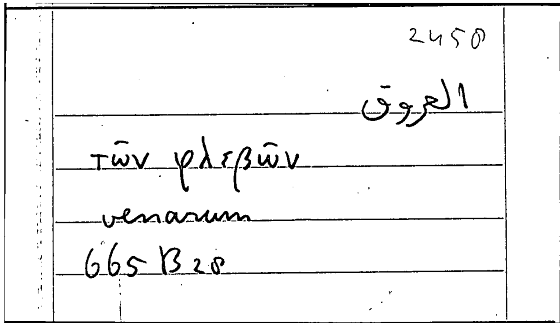 2458
العروق
τῶν φλεβῶν
venarum
665 B 28